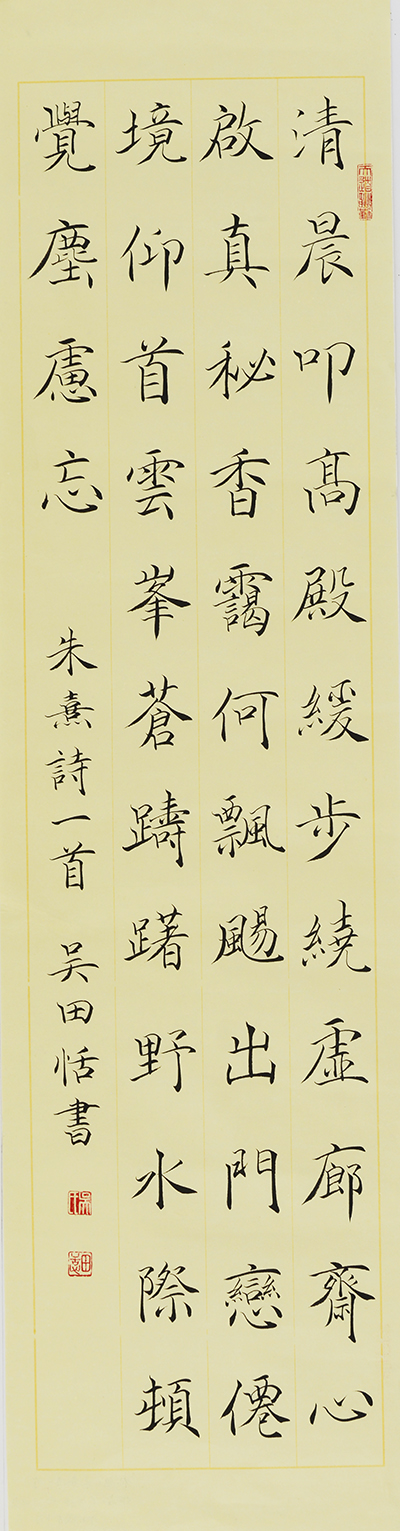 清晨叩高殿緩步繞虛廊齋心
啟真秘香靄何飄颺出門戀僊
境仰首雲峯蒼躊躇野水際頓
覺塵慮忘
朱熹詩一首 吴田恬書